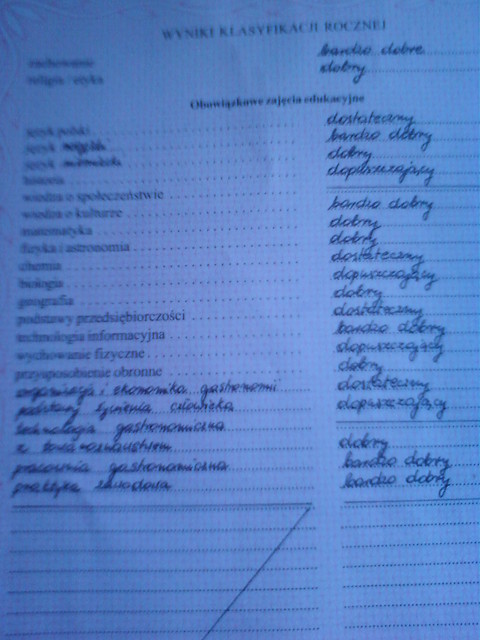 WYNIKI KLASYFIKACJI ROCZNEJ
zachowanie bardzo dobre
religia / etyka dobry
Obowiązkowe zajęcia edukacyjne
język polski dostateczny
język bardzo dobry
język niemiecki dobry
historia dopuszczający
wiedza o społeczeństwie
wiedza o kulturze bardzo dobry
matematyka dobry
fizyka i astronomia dobry
chemia dostateczny
biologia dopuszczający
geografia dobry
podstawy przedsiębiorczości dostateczny
technologia informacyjna bardzo dobry
wychowanie fizyczne dopuszczający
przysposobienie obronne dobry
organizacja i ekonomika gastronomii dostateczny
podstawy żywienia człowieka dopuszczający
technologia gastronomiczna
z towaroznawstwem dobry
pracownia gastronomiczna bardzo dobry
praktyka zawodowa bardzo dobry